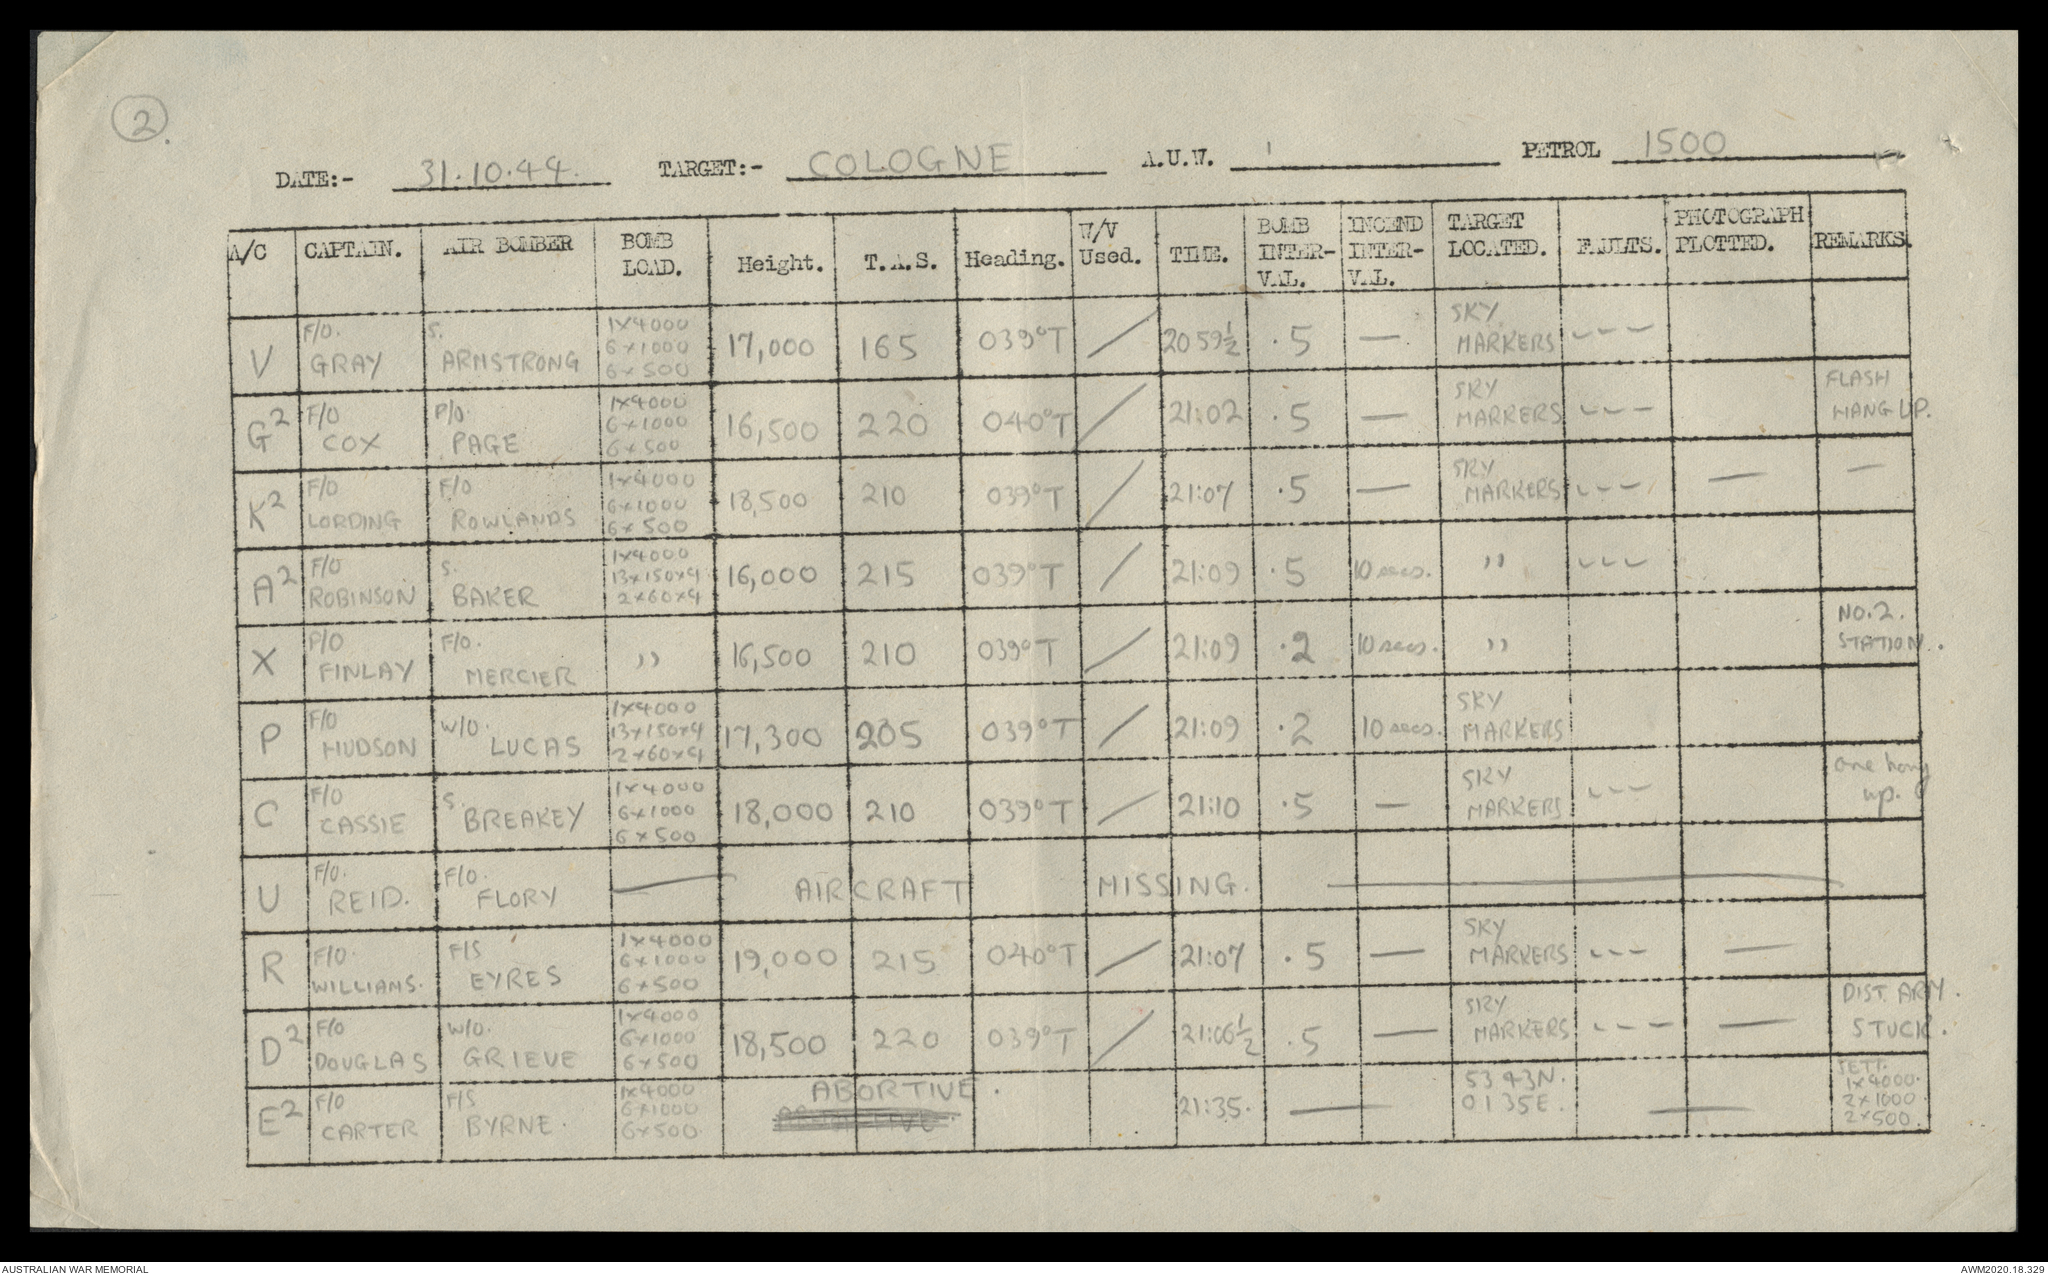 2.
DATE:- 31.10.44. TARGET:- COLOGNE A.U.W. PETROL 1500
A/C CAPTAIN. AIR BOMBER BOMB LOAD. Height. T.A.S. Heading. W/V Used. TIME. BOMB INTER-VAL. INCEND INTER-VAL. TARGET LOCATED. FAULTS. PHOTOGRAPH PLOTTED. REMARKS.
V F/O. GRAY S. ARMSTRONG 1x4000 6x1000 6x500 17,000 165 039°T / 2059½ .5 — SKY MARKERS - - -
G2 F/O COX P/O. PAGE 1x4000 6x1000 6x500 16,500 220 040°T / 21:02 .5 — SKY MARKERS - - - FLASH HANG UP.
K2 F/O LORDING F/O ROWLANDS 1x4000 6x1000 6x500 18,500 210 039°T / 21:07 .5 — SKY MARKERS - - - — —
A2 F/O ROBINSON S. BAKER 1x4000 13x150x4 2x60x4 16,000 215 039°T / 21:09 .5 10 secs. " - - -
X P/O FINLAY F/O. MERCIER " 16,500 210 039°T / 21:09 .2 10 secs. " NO.2. STATION.
P F/O HUDSON W/O. LUCAS 1x4000 13x150x4 2x60x4 17,300 205 039°T / 21:09 .2 10 secs. SKY MARKERS
C F/O CASSIE S. BREAKEY 1x4000 6x1000 6x500 18,000 210 039°T / 21:10 .5 — SKY MARKERS - - - one hang up.
U F/O. REID. F/O. FLORY — AIRCRAFT MISSING. —
R F/O. WILLIAMS. F/S EYRES 1x4000 6x1000 6x500 19,000 215 040°T / 21:07 .5 — SKY MARKERS - - - —
D2 F/O DOUGLAS W/O. GRIEVE 1x4000 6x1000 6x500 18,500 220 039°T / 21:06½ .5 — SKY MARKERS - - - — DIST. ARM. STUCK.
E2 F/O CARTER F/S BYRNE. 1x4000 6x1000 6x500. ABORTIVE. 21:35. — 5343N. 0135E. — JETT. 1x4000. 2x1000 2x500.
AUSTRALIAN WAR MEMORIAL AWM2020.18.329